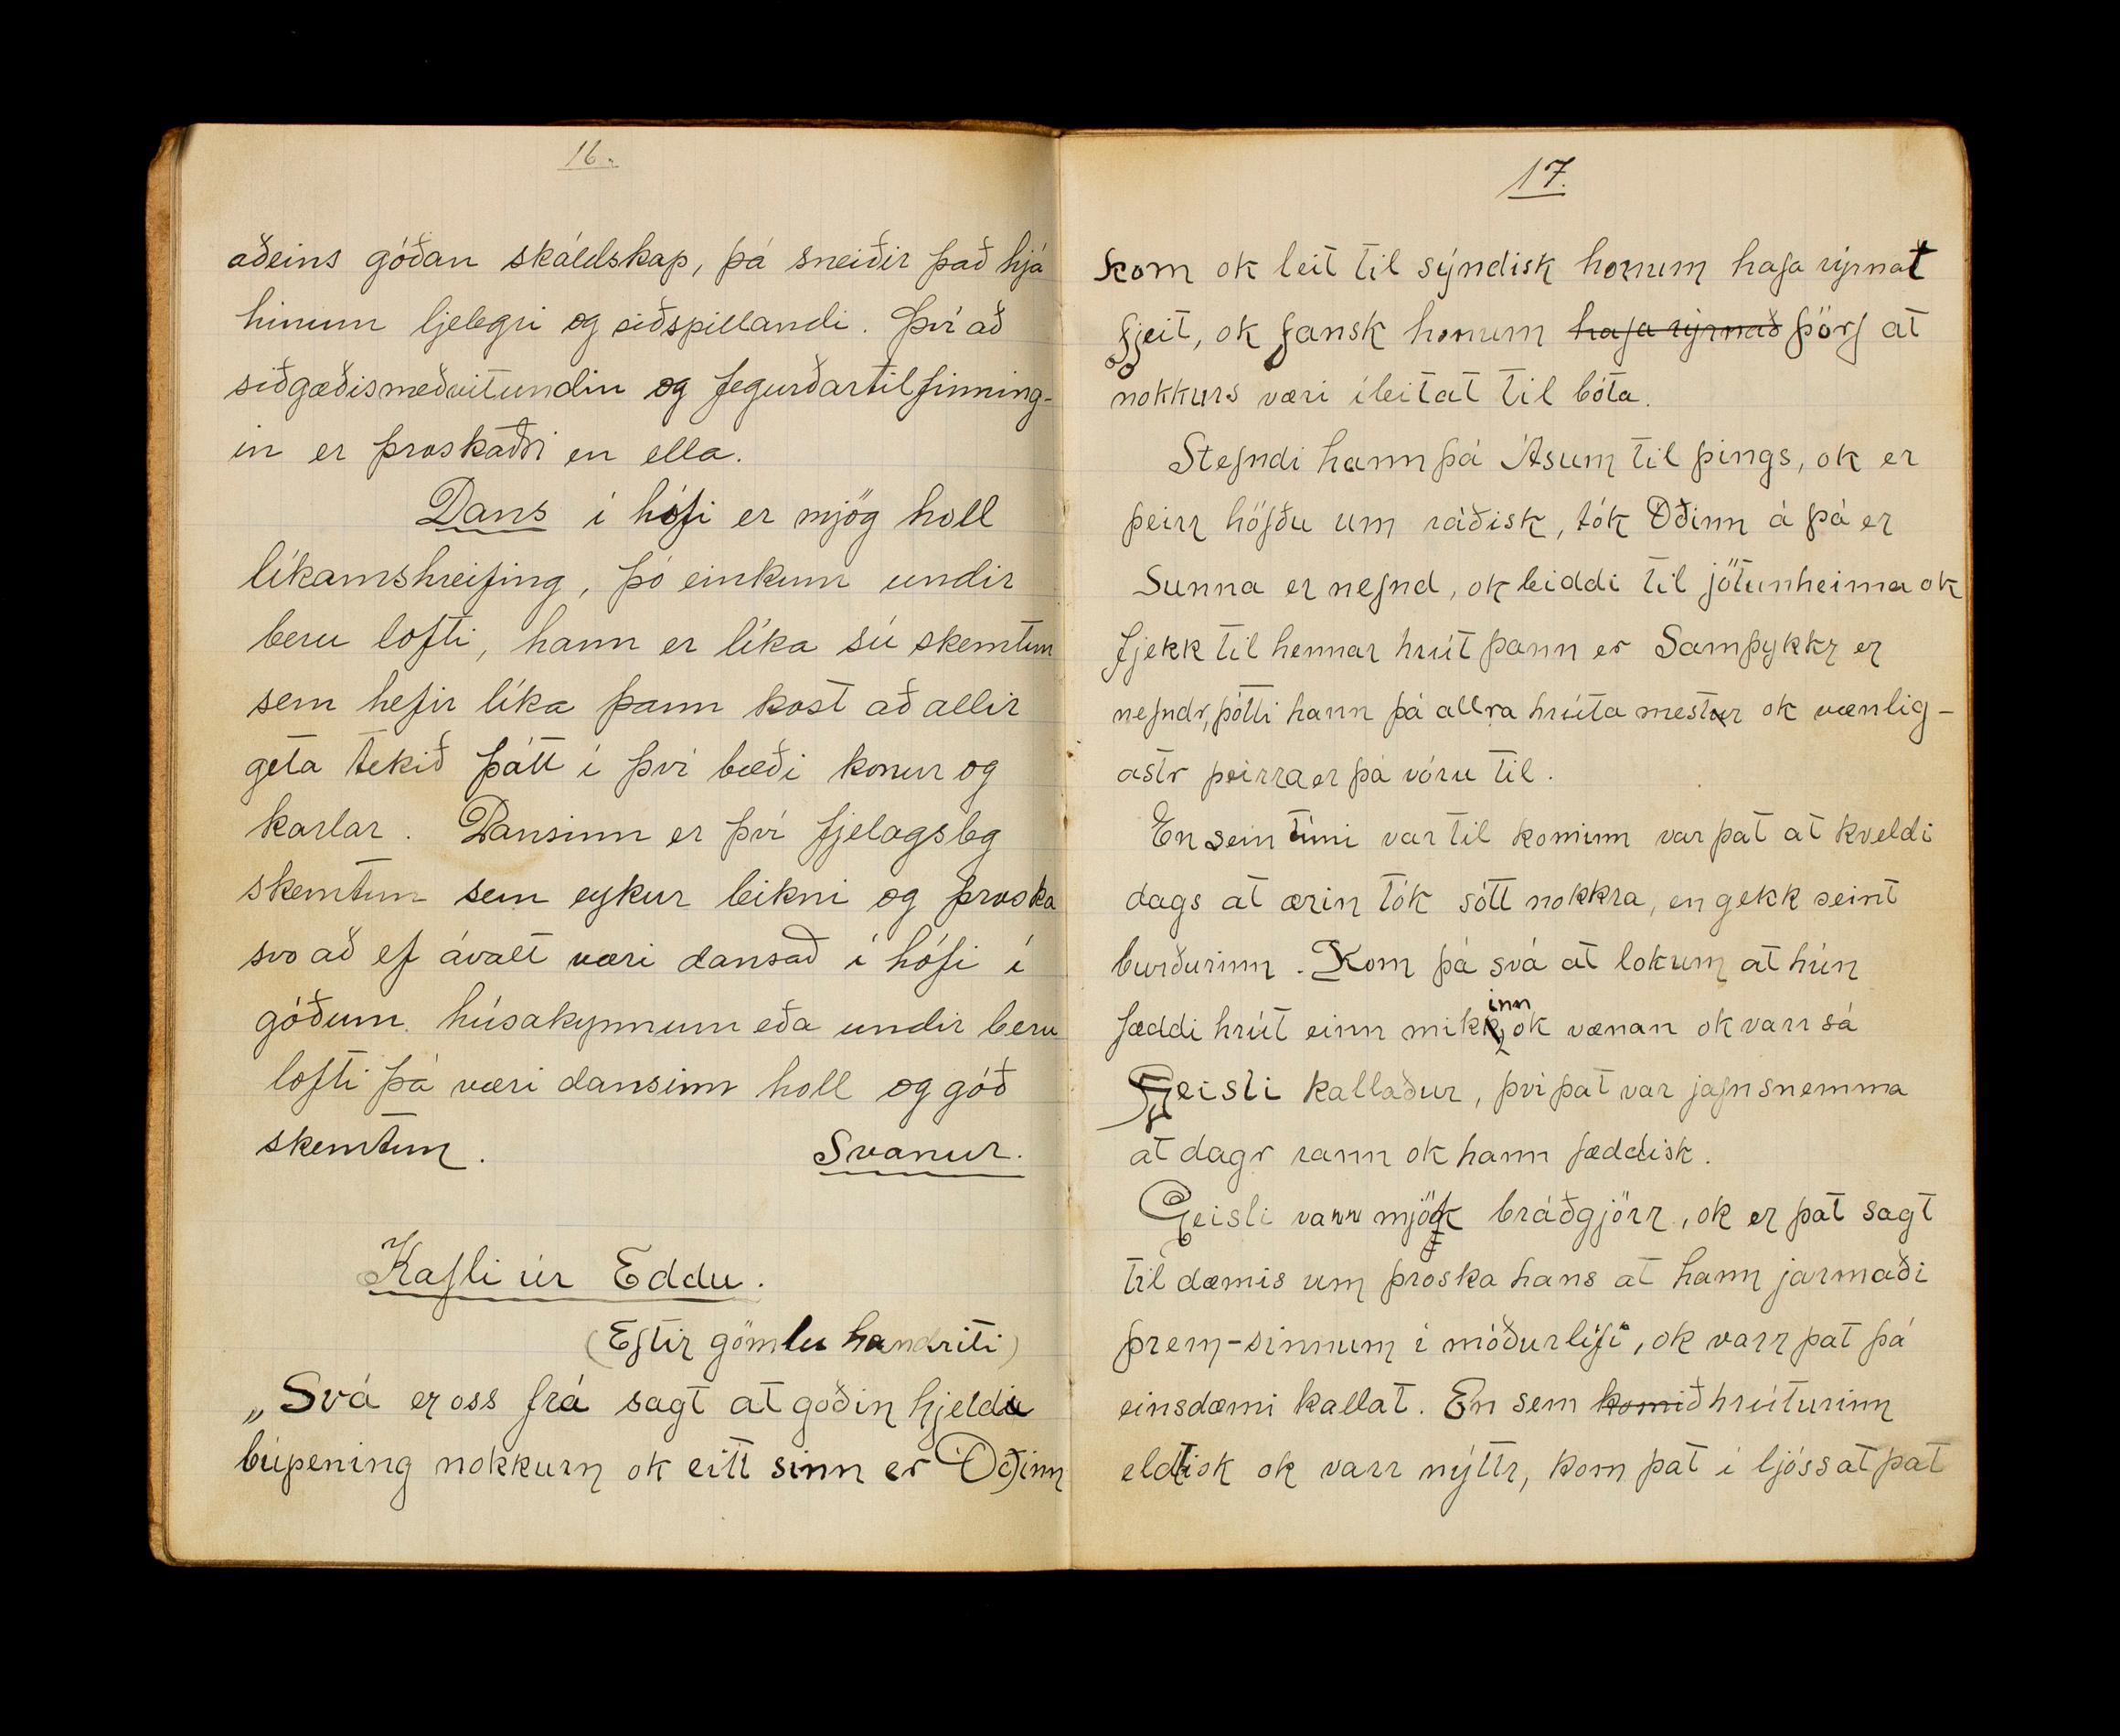 16.
aðeins góðan skáldskap, þá sneiðir það hjá
hinum ljelegri og siðspillandi. Því að
siðgæðismeðvitundin og fegurðartilfinning-
in er þroskaðri en ella.
Dans í hófi er mjög holl
líkamshreifing, þó einkum undir
beru lofti, hann er líka sú skemtun
sem hefir líka þann kost að allir
geta tekið þátt í því bæði konur og
karlar. Dansinn er því fjelagsleg
skemtun sem eykur leikni og þroska
svo að ef ávalt væri dansað í hófi í
góðum húsakynnum eða undir beru
lofti þá væri dansinn holl og góð
skemtun. Svanur.
Kafli úr Eddu.
(Eftir gömlu handriti)
„Svá er oss frá sagt at goðin hjeldu
búpening nokkurn ok eitt sinn er Óðinn
17.
kom ok leit til sýndisk honum hafa rýrnat
fjeit, ok fansk honum hafa rýrnað þörf at
nokkurs væri íleitat til bóta.
Stefndi hann þá Ásum til þings, ok er
þeirr höfðu um ráðisk, tók Óðinn á þá er
Sunna er nefnd, ok leiddi til jötunheima ok
fjekk til hennar hrút þann er Samþykkr er
nefndr, þótti hann þá allra hrúta mestur ok vænlig-
astr þeirra er þá vóru til.
En sein tími var til kominn var þat at kveldi
dags at ærin tók sótt nokkra, en gekk seint
burðurinn. Kom þá svá at lokum at hún
fæddi hrút einn mikinn ok vænan ok varr sá
Geisli kallaður, því þat var jafnsnemma
at dagr rann ok hann fæddisk.
Geisli varr mjök bráðgjörr, ok er þat sagt
til dæmis um þroska hans at hann jarmaði
þrem-sinnum í móðurlífi, ok varr þat þá
einsdæmi kallat. En sem komið hrúturinn
eldtisk ok varr nýttr, kom þat í ljóss at þat